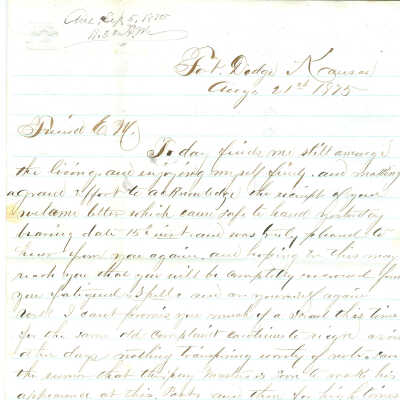 Ans, Sep 5, 1875
Fort Dodge Kansas
Augs 21st 1875
Friend E. M.
To day finds me still among
the living, and enjoying myself finely, and making
a grand effort to acknowledge the receipt of your
welcome letter which came safe to hand yesterday
bearing date 15th inst and was truly pleased to
hear from you again, and hoping in this may
reach you that you will be completely recovered from
your fatigued spell & and on yourself again
Well I can't promise you much of a Treat this time
for the same old complaint continues to reign as in
other days nothing transpiring worthy of note save
the rumor that the pay master is soon to make his
appearance at this Post, and then for high times